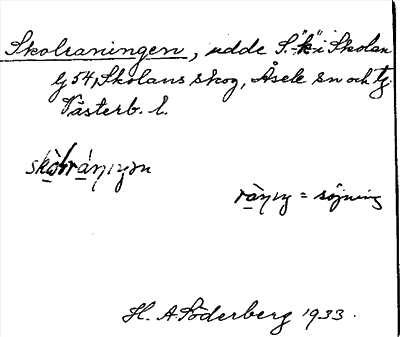 Skolraningen, udde S. "k" i Skolan
Lj 54, Skolans skog, Åsele sn och tg.
Västerb. l.
skòlráŋıŋən
ràŋıŋ = söjning
H. A. Söderberg 1933.